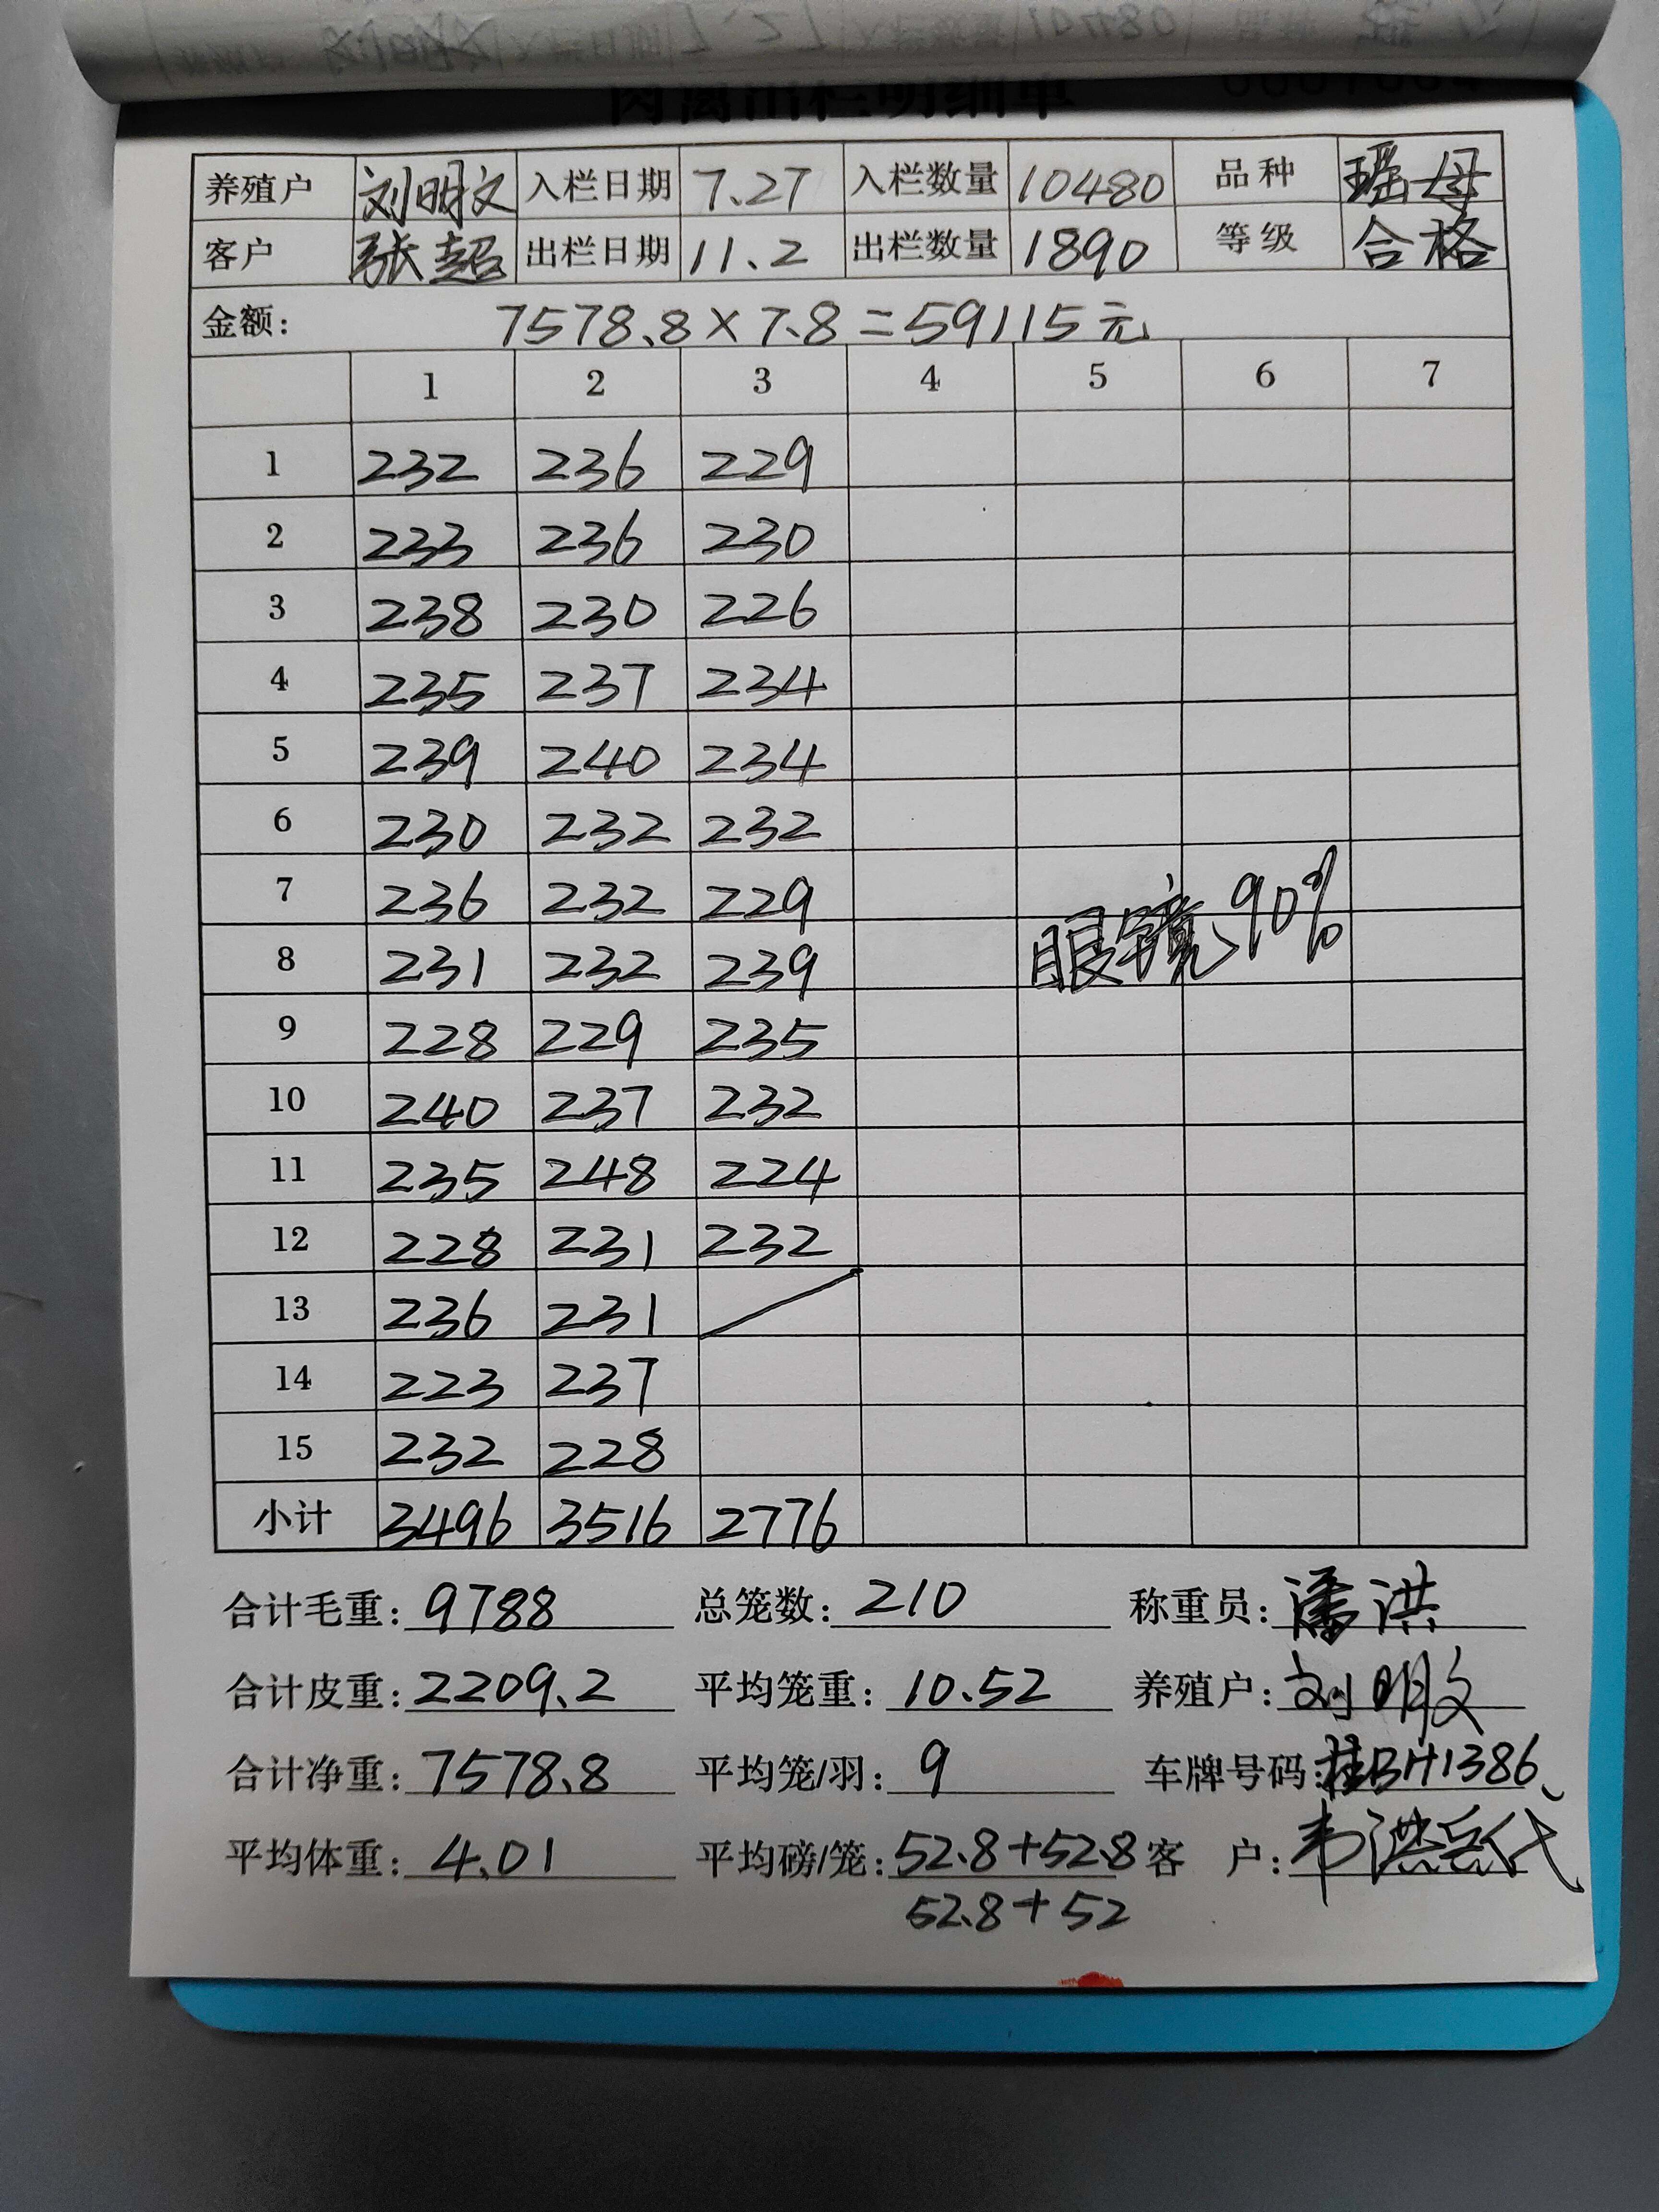 肉禽出栏明细单
养殖户 刘明文 入栏日期 7.27 入栏数量 10480 品种 瑶母
客户 张超 出栏日期 11.2 出栏数量 1890 等级 合格
金额: 7578.8×7.8=59115元
1 2 3 4 5 6 7
1 232 236 229
2 233 236 230
3 238 230 226
4 235 237 234
5 239 240 234
6 230 232 232
7 236 232 229
8 231 232 239 眼镜90%
9 228 229 235
10 240 237 232
11 235 248 224
12 228 231 232
13 236 231
14 223 237
15 232 228
小计 3496 3516 2776
合计毛重: 9788 总笼数: 210 称重员: 潘洪
合计皮重: 2209.2 平均笼重: 10.52 养殖户: 刘明文
合计净重: 7578.8 平均笼/羽: 9 车牌号码: 桂BH1386、
平均体重: 4.01 平均磅/笼: 52.8+52.8 客 户: 韦洪兵代
52.8+52